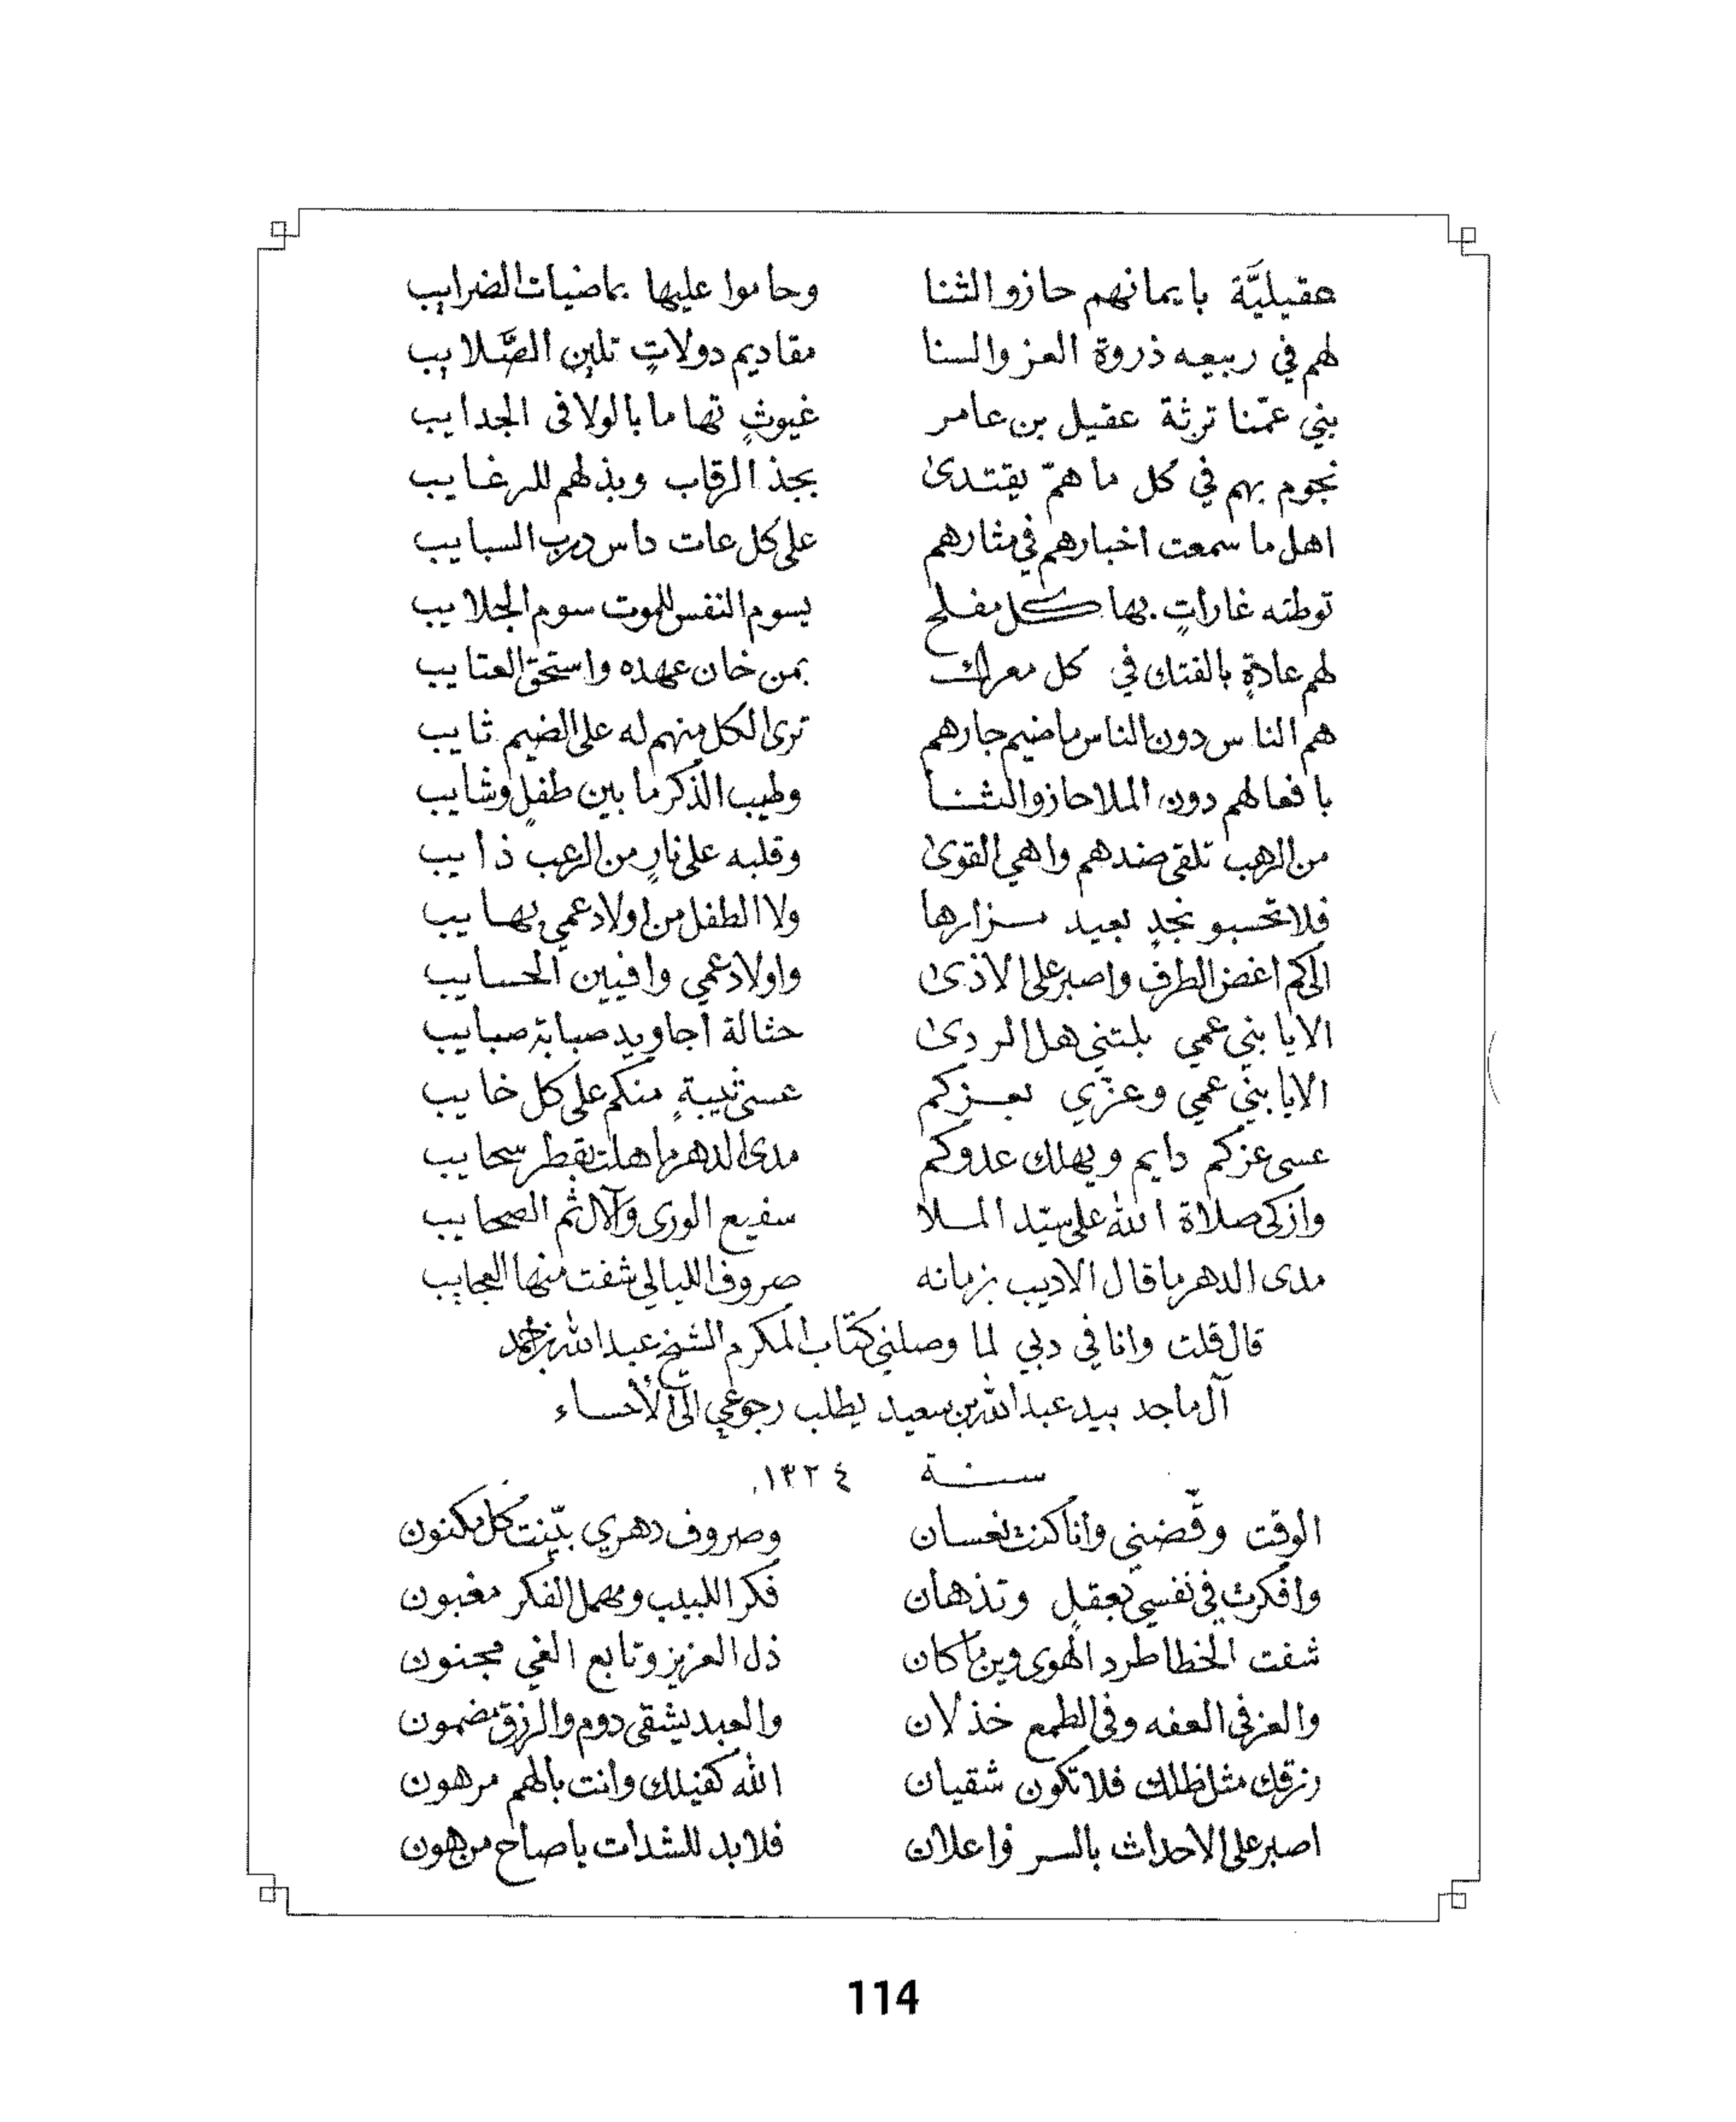 عقيليَّة بايمانهم حازو الثنا وحاموا عليها بماضيات الضرايب
لهم في ربيعه ذروة العز والسنا مقاديم دولاتٍ تلين الصَّلايب
بني عمّنا ترثة عقيل بن عامر غيوثٍ تهاما بالولا في الجدايب
نجوم بهم في كل ما همّ يقتدىٰ بجذ الرقاب وبذلهم للرغايب
اهل ما سمعت اخبارهم في مثارهم على كل عات داس درب السبايب
توطته غاراتٍ بها كل مفلح يسوم النفس للموت سوم الجلايب
لهم عادةٍ بالفتك في كل معرك بمن خان عهده واستحق العتايب
هم الناس دون الناس ما ضيم جارهم ترى الكل منهم له على الضيم ثايب
بافعالهم دون الملا حازو الثنا وطيب الذكر ما بين طفلٍ وشايب
من الرهب تلقى ضدهم واهي القوىٰ وقلبه على نارٍ من الرعب ذايب
فلا تحسبو نجدٍ بعيد مزارها ولا الطفل من اولاد عمي يهايب
الى كم اغض الطرف واصبر على الاذىٰ واولاد عمي وافيين الحسايب
الا يا بني عمي بلتني هل الردىٰ حثالة اجاويد صبابة صبايب
الا يا بني عمي وعزّي بعزكم عسى ثيبةٍ منكم على كل خايب
عسى عزكم دايم ويهلك عدوكم مدى الدهر ما هلت بقطر سحايب
وازكى صلاة الله على سيّد الملا سفيع الورى والآل ثم الصحايب
مدى الدهر ما قال الاديب بزمانه صروف الليالي شفت منها العجايب
قال قلت وانا في دبي لما وصلني كتاب المكرم الشيخ عبد الله بن احمد
آل ماجد بيد عبد الله بن سعيد يطلب رجوعي الى الأحساء
سنة ١٣٢٤
الوقت وقّضني وانا كنت نعسان وصروف دهري بيّنت كل مكنون
وافكرت في نفسي بعقلٍ وتذهان فكر اللبيب ومهمل الفكر مغبون
شفت الخطا طرد الهوى وين ما كان ذل العزيز وتابع الغي مجنون
والعز في العفه وفي الطمع خذلان والعبد يشقى دوم والرزق مضمون
رزقك مثل ظلك فلا تكون شقيان الله كفيلك وانت بالهم مرهون
اصبر على الاحداث بالسر واعلان فلا بد للشدات يا صاح من هون
114